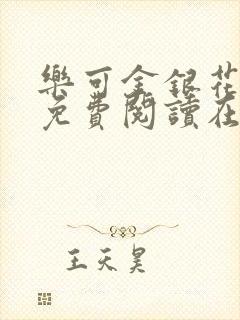 樂可金銀花
免費閱讀在
王天昊